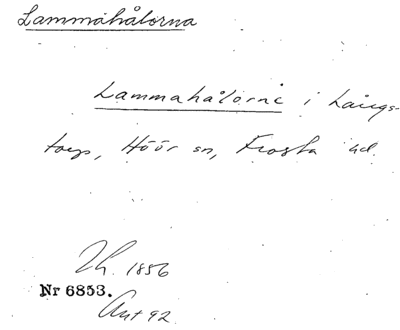 Lammahålorna
Lammahålorne i Långs-
torp, Höör sn, Frosta hd.
Lh. 1856
Nr 6853.
Ant 92.